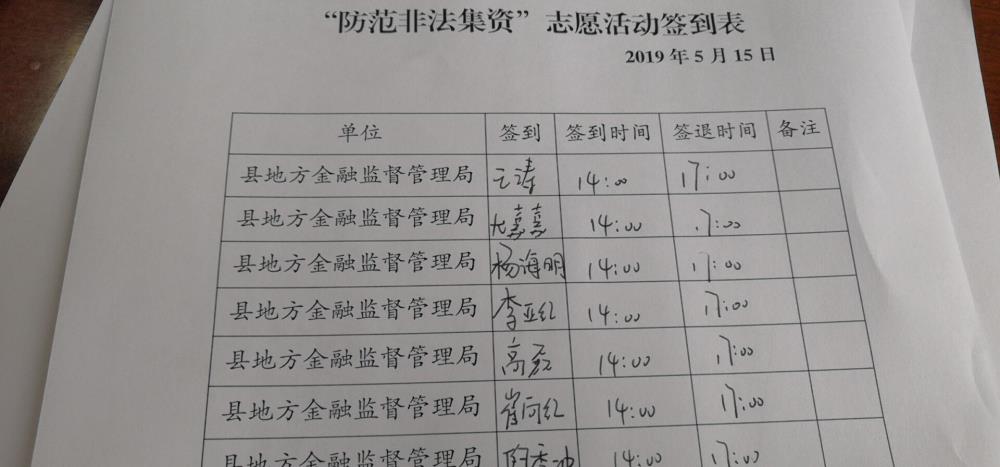 “防范非法集资”志愿活动签到表
2019年5月15日
单位 签到 签到时间 签退时间 备注
县地方金融监督管理局 王涛 14:00 17:00
县地方金融监督管理局 嘉嘉 14:00 17:00
县地方金融监督管理局 杨海明 14:00 17:00
县地方金融监督管理局 李亚红 14:00 17:00
县地方金融监督管理局 高 14:00 17:00
县地方金融监督管理局 红 14:00 17:00
县地方金融监督管理局 14:00 17:00